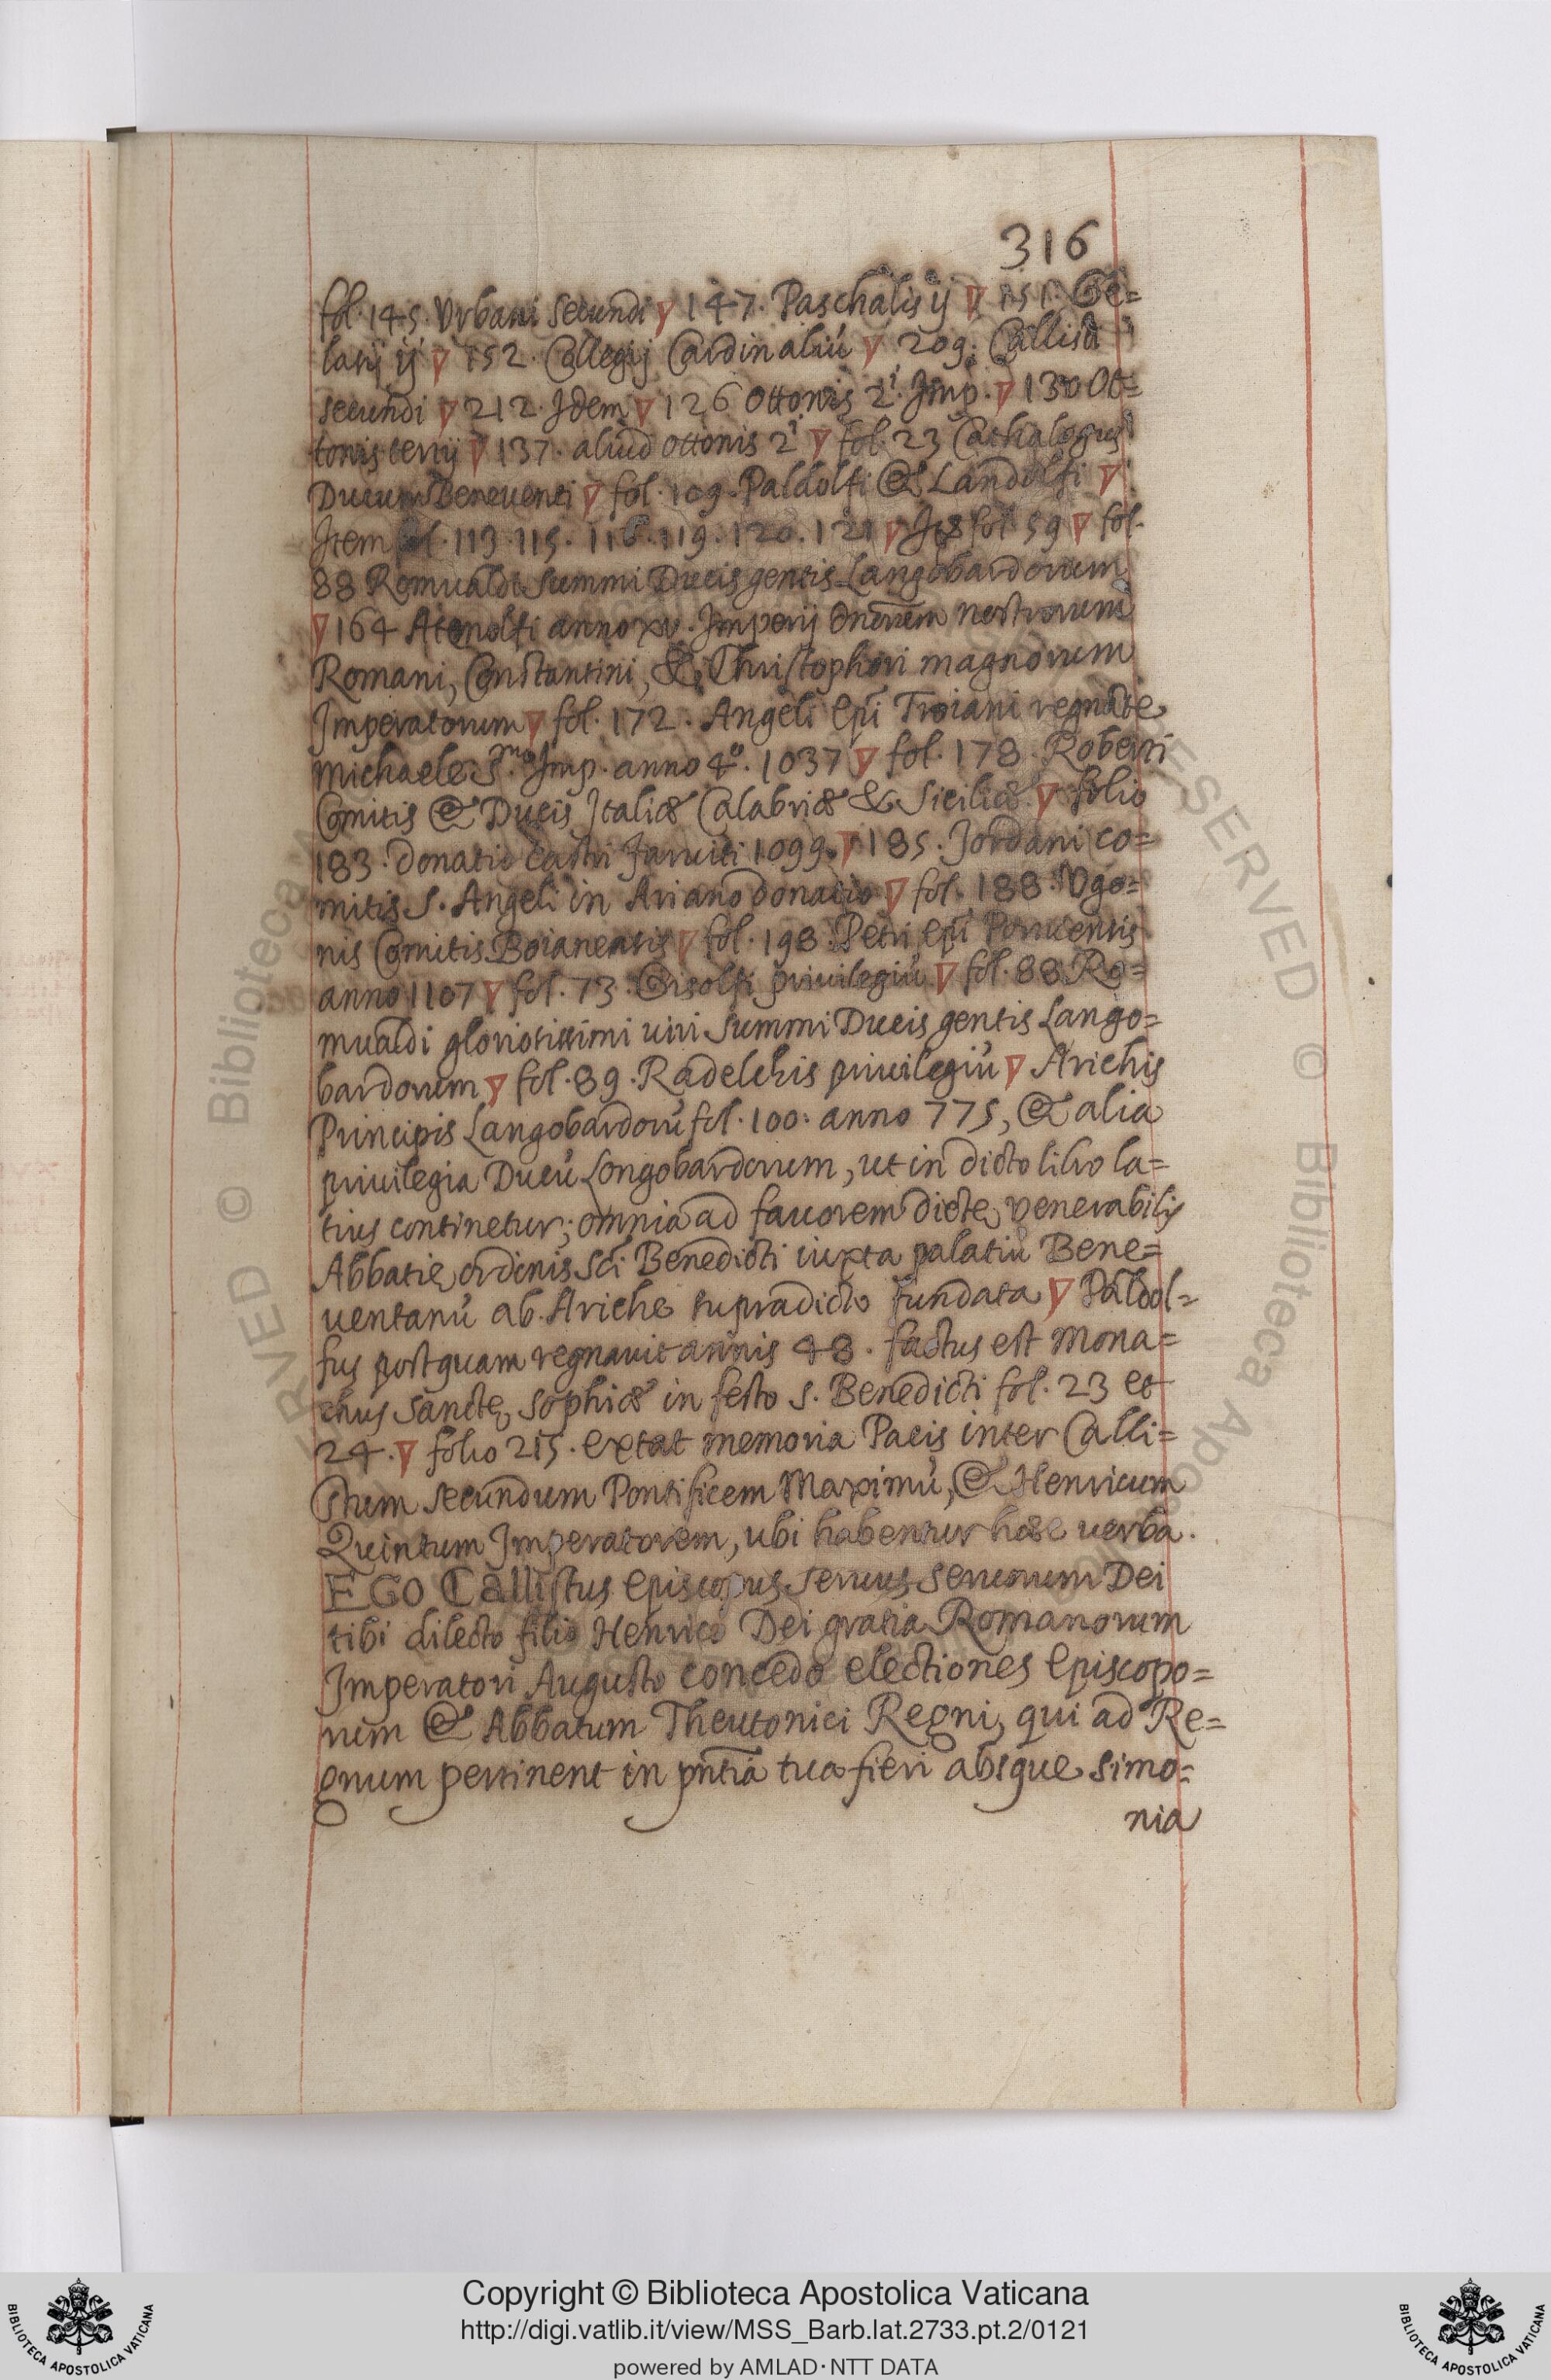 316
fol. 145. Urbani secundi ∇ 147. Paschalis ij ∇ 151. Ge=
lasij ij ∇ 152. Collegij Cardinaliū ∇ 209. Callisti
secundi ∇ 212. Idem ∇ 126 Ottonis 2i. Imp. ∇ 130 Ot=
tonis tertij ∇ 137. aliud ottonis 2i ∇ fol. 23 Cathalogus
Ducum Beneventi ∇ fol. 109. Paldolfi & Landolfi ∇
Item fol. 113. 115. 116. 119. 120. 121 ∇ fol 59 ∇ fol.
88 Romualdi summi Ducis gentis Langobardorum
∇ 164 Atenolfi anno xv. Imperij nostrorum
Romani, Constantini, & Christophori magnorum
Imperatorum ∇ fol. 172. Angeli Epi Troiani regnāte
Michaele S.mo Imp. anno 4o. 1037 ∇ fol. 178. Roberti
Comitis & Ducis Italiæ Calabriæ & Siciliæ ∇ folio
183. donatio castri 1099. ∇ 185. Jordani co=
mitis S. Angeli in Ariano donatio ∇ fol. 188. Ugo=
nis Comitis Boianensis ∇ fol. 198. Petri epi
anno 1107 ∇ fol. 73. Gisolfi privilegiū ∇ fol. 88 Ro=
mualdi gloriosissimi uiri summi Ducis gentis Lango=
bardorum ∇ fol. 89. Radelchis priuilegiū ∇ Arichis
Principis Langobardorū fol. 100. anno 775, & alia
priuilegia Ducū Longobardorum, ut in dicto libro la=
tius continetur; omnia ad fauorem dictę venerabilis
Abbatię ordinis Sci Benedicti iuxta palatiū Bene=
uentanū ab Ariche supradicto fundata ∇ Paldol=
fus postquam regnauit annis 48. factus est mona=
chus sanctę sophiæ in festo S. Benedicti fol. 23 et
24. ∇ folio 215. extat memoria Pacis inter Calli=
stum secundum Pontificem Maximū, & Henricum
Quintum Imperatorem, ubi habentur hæc uerba.
EGO Callistus episcopus seruus seruorum Dei
tibi dilecto filio Henrico Dei gratia Romanorum
Imperatori Augusto concedo electiones Episcopo=
rum & Abbatum Theutonici Regni, qui ad Re=
gnum pertinent in pñtia tua fieri absque simo=
nia
Copyright © Biblioteca Apostolica Vaticana
http://digi.vatlib.it/view/MSS_Barb.lat.2733.pt.2/0121
powered by AMLAD·NTT DATA
BIBLIOTECA APOSTOLICA VATICANA
BIBLIOTECA APOSTOLICA VATICANA